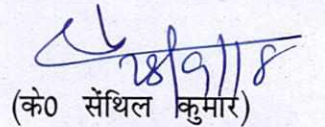 28/9/18
(के0 सेंथिल कुमार)